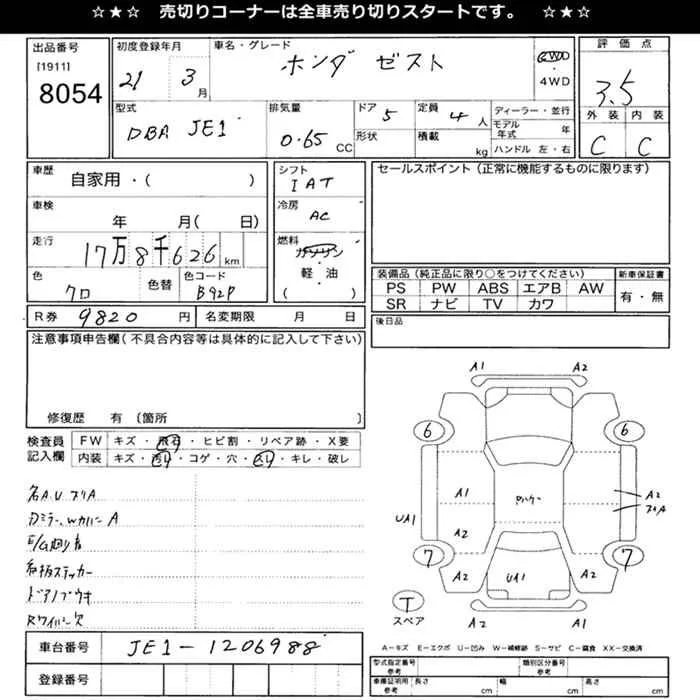 ☆★☆ 売切りコーナーは全車売り切りスタートです。 ☆★☆
出品番号 初度登録年月 車名・グレード 評価点
[1911] 21 3月 ホンダ ゼスト 2WD・4WD 3.5
8054
型式 排気量 ドア 5 定員 4人 ディーラー・並行 外装 内装
DBA JE1 0.65 CC 形状 積載 kg モデル年式 年 C C
ハンドル 左・右
車歴 自家用・( ) シフト IAT セールスポイント (正常に機能するものに限ります)
車検 年 月( 日) 冷房 AC
走行 17万8千626 km 燃料 ガソリン・軽油 ( )
色 クロ 色替 色コード B92P
装備品(純正品に限り○をつけてください) 新車保証書
PS PW ABS エアB AW 有・無
SR ナビ TV カワ
R券 9820 円 名変期限 月 日 後日品
注意事項申告欄(不具合内容等は具体的に記入して下さい)
修復歴 有 (箇所 )
検査員記入欄 FW キズ・飛石・ヒビ割・リペア跡・X要
内装 キズ・汚れ・コゲ・穴・スレ・キレ・破レ
A1 A2
6 6
A1 A2
UA1 A2
7 7
A2 UA1 A2 A2
T
スペア
A2 A1
紙板ステッカー
ドアノブウキ
Rワイパー欠
A-キズ E-エクボ U-凹み W-補修跡 S-サビ C-腐食 XX-交換済
車台番号 JE1-1206988
登録番号
型式指定番号 参考 類別区分番号 参考
車庫証明用 参考 長さ cm 幅 cm 高さ cm